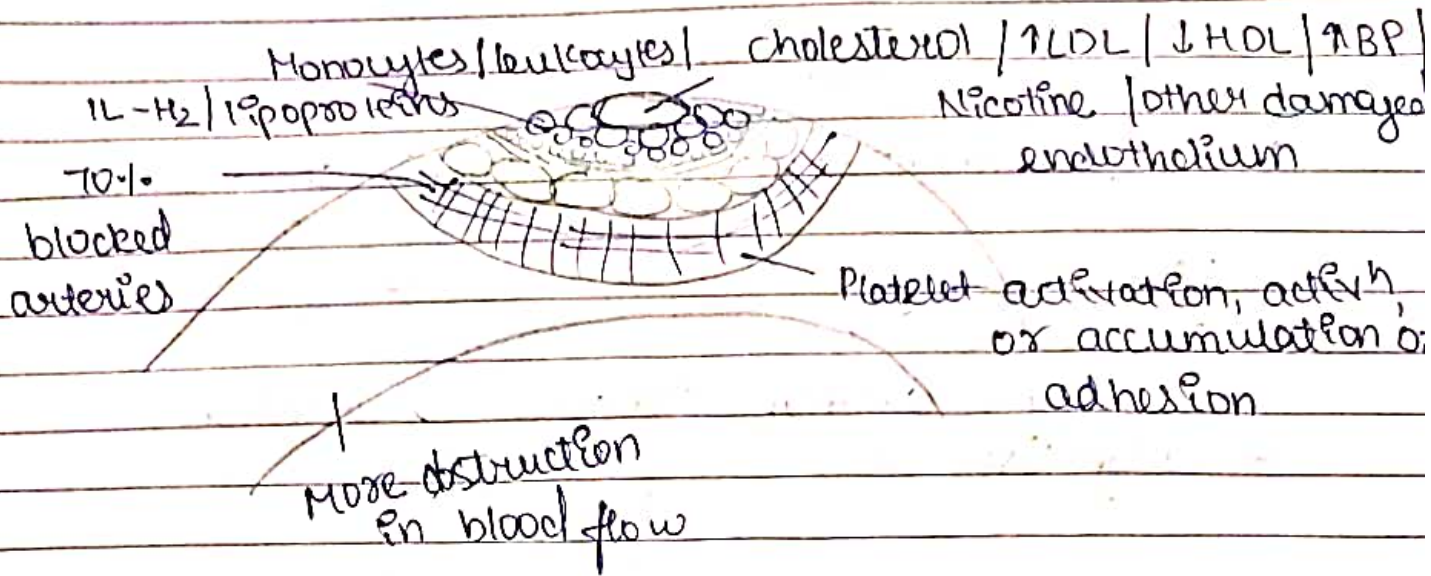 Monocytes/leukocytes/
IL-H2/lipoproteins
cholesterol/↑LDL/↓HDL/↑BP/
Nicotine/other damaged
endothelium
70%
blocked
arteries
Platelet activation, activn,
or accumulation o
adhesion
More obstruction
in blood flow